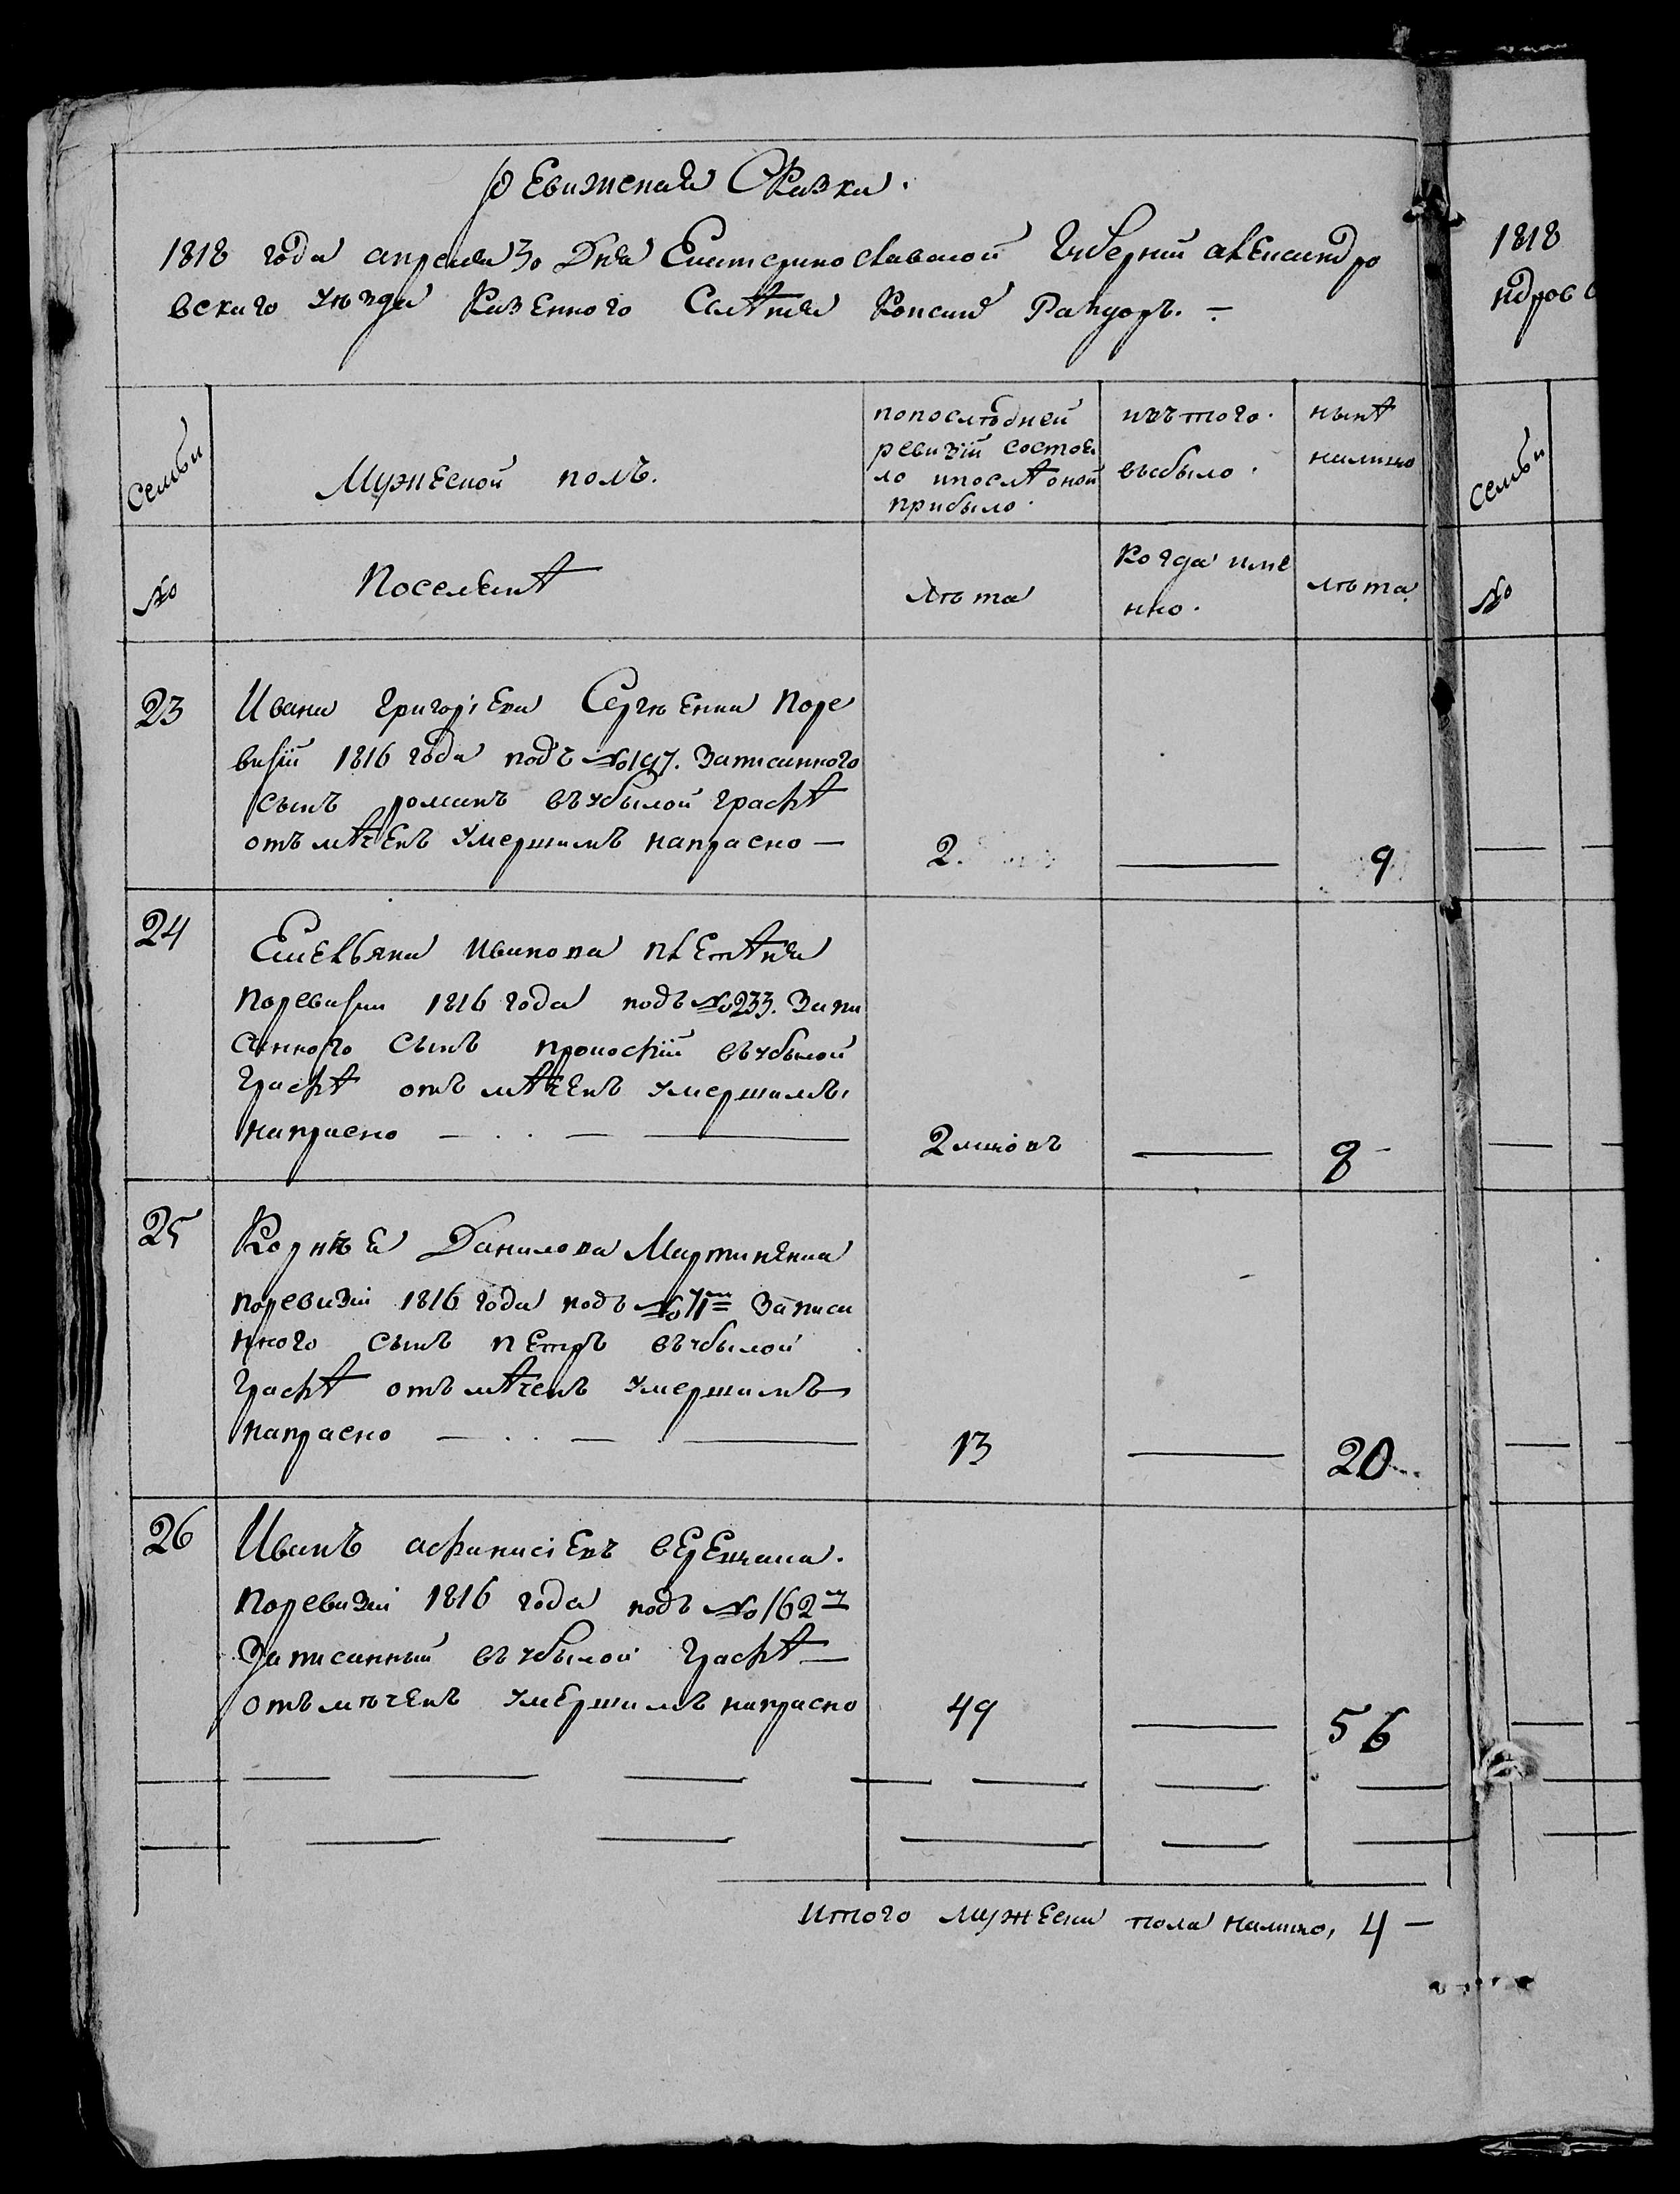 Ревижская Сказка.
1818 года апреля 30 Дня Екатеринославской Губернии александро
вского уѣзда Казенного Селѣния Конския Раздоръ.
Семьи
Мужеской полъ.
попослѣдней
ревизіи состоя
ло ипослѣ оной
прибыло.
изъ того.
выбыло.
нынѣ
налицо
№
Поселянѣ
лѣта
Когда име
нно.
лѣта
23
Ивана григоріева Сергѣенка поре
визіи 1816 года подъ №197. Записанного
сынъ романъ въ убылой графѣ
отъмѣченъ умершимъ напрасно —
2.
—
9
24
Емельяна иванова
поревизіи 1816 года подъ №233. Запи
санного сынъ прокофій въ убылой
графѣ отъмѣченъ умершимъ
напрасно — . . — —
2 —
8
25
Корнѣя Данилова Мартиненка
поревизіи 1816 года подъ №71 Записа
нного сынъ петръ въ убылой
графѣ отъмѣченъ умершимъ
напрасно — . . — . —
13
—
20
26
Иванъ афанасіевъ
поревизіи 1816 года подъ №162
Записанный въ убылой графѣ —
отъмѣченъ умершимъ напрасно
49
—
56
итого мужеска пола налицо, 4 —
1818
ндровс
Семьи
№